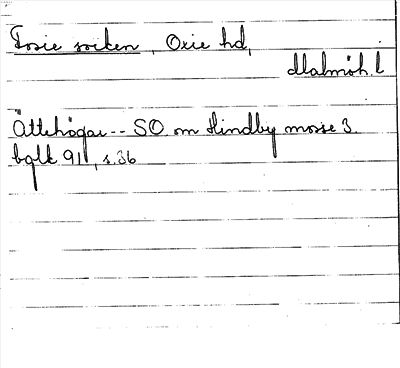 Fosie socken, Oxie hd,
Malmöh. l
Ättehögar -- SO om Hindby mosse 3.
bglk 91, s.36